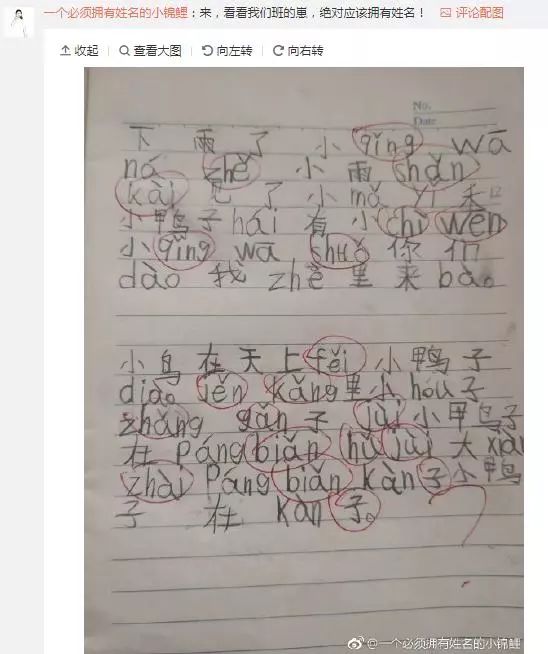 一个必须拥有姓名的小锦鲤：来，看看我们班的崽，绝对应该拥有姓名！ 评论配图
收起 查看大图 向左转 向右转
No.
Date
下 雨 了 小 qǐng wā
ná zhě 小 雨 shǎn
kài 见 了 小 mǎ yǐ 禾
小鸭子 hái 有 小 chì wēn
小 qǐng wā shuō 你 们
dào 我 zhè 里 来 bào。
小 鸟 在 天 上 fěi 小 鸭 子
diào jěn kǎng 里 小 hóu 子
zhǎng gǎn 子 jùi 小 鸭 子
在 páng biǎn hǔ jùi 大 xiàn
zhài páng biǎn kàn 子 小 鸭
子 在 kàn 子。
@一个必须拥有姓名的小锦鲤